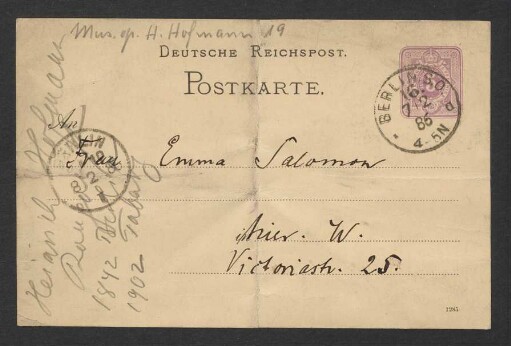 Mus. ep. H. Hofmann 19
DEUTSCHE REICHSPOST.
POSTKARTE.
BERLIN S.O.
16
7 12
86
4-5N
An
Frau Emma Salomon
hier. W.
Victoriastr. 25.
Heinrich Hofmann
1842 Berlin
1902 Tabarz
1285